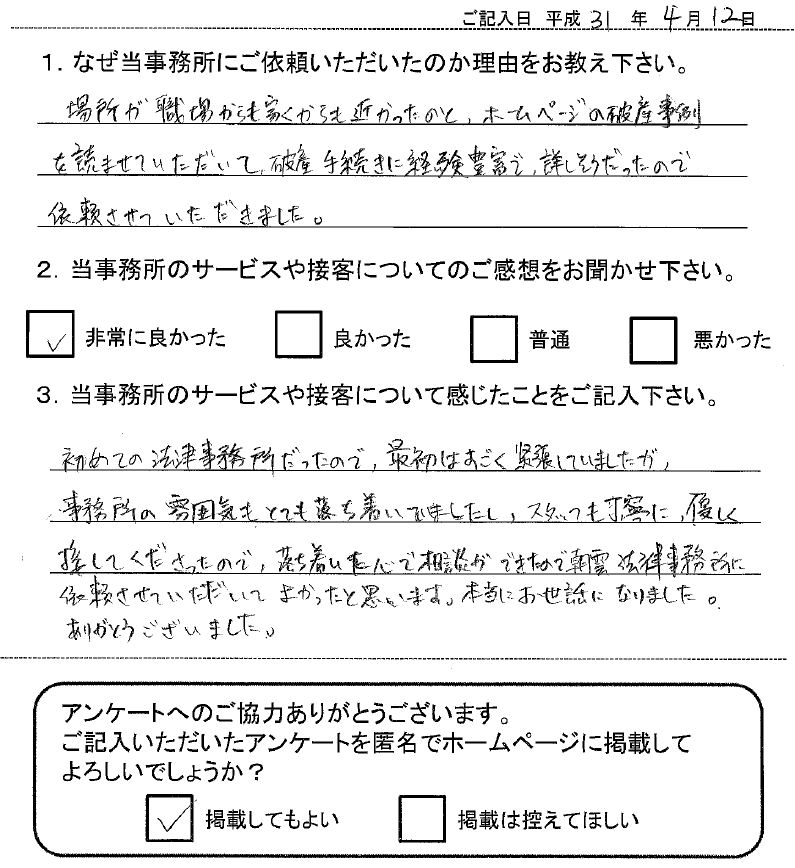 ご記入日 平成 31 年 4月 12日
1. なぜ当事務所にご依頼いただいたのか理由をお教え下さい。
場所が職場からも家からも近かったのと、ホームページの破産事例
を読ませていただいて、破産手続きに経験豊富で、詳しそうだったので
依頼させていただきました。
2. 当事務所のサービスや接客についてのご感想をお聞かせ下さい。
非常に良かった 良かった 普通 悪かった
3. 当事務所のサービスや接客について感じたことをご記入下さい。
初めての法律事務所だったので、最初はすごく緊張していましたが、
事務所の雰囲気もとても落ち着いてましたし、スタッフも丁寧に、優しく
接してくださったので、落ち着いた心で相談ができたので朝雲法律事務所に
依頼させていただいてよかったと思います。本当にお世話になりました。
ありがとうございました。
アンケートへのご協力ありがとうございます。
ご記入いただいたアンケートを匿名でホームページに掲載して
よろしいでしょうか?
掲載してもよい 掲載は控えてほしい